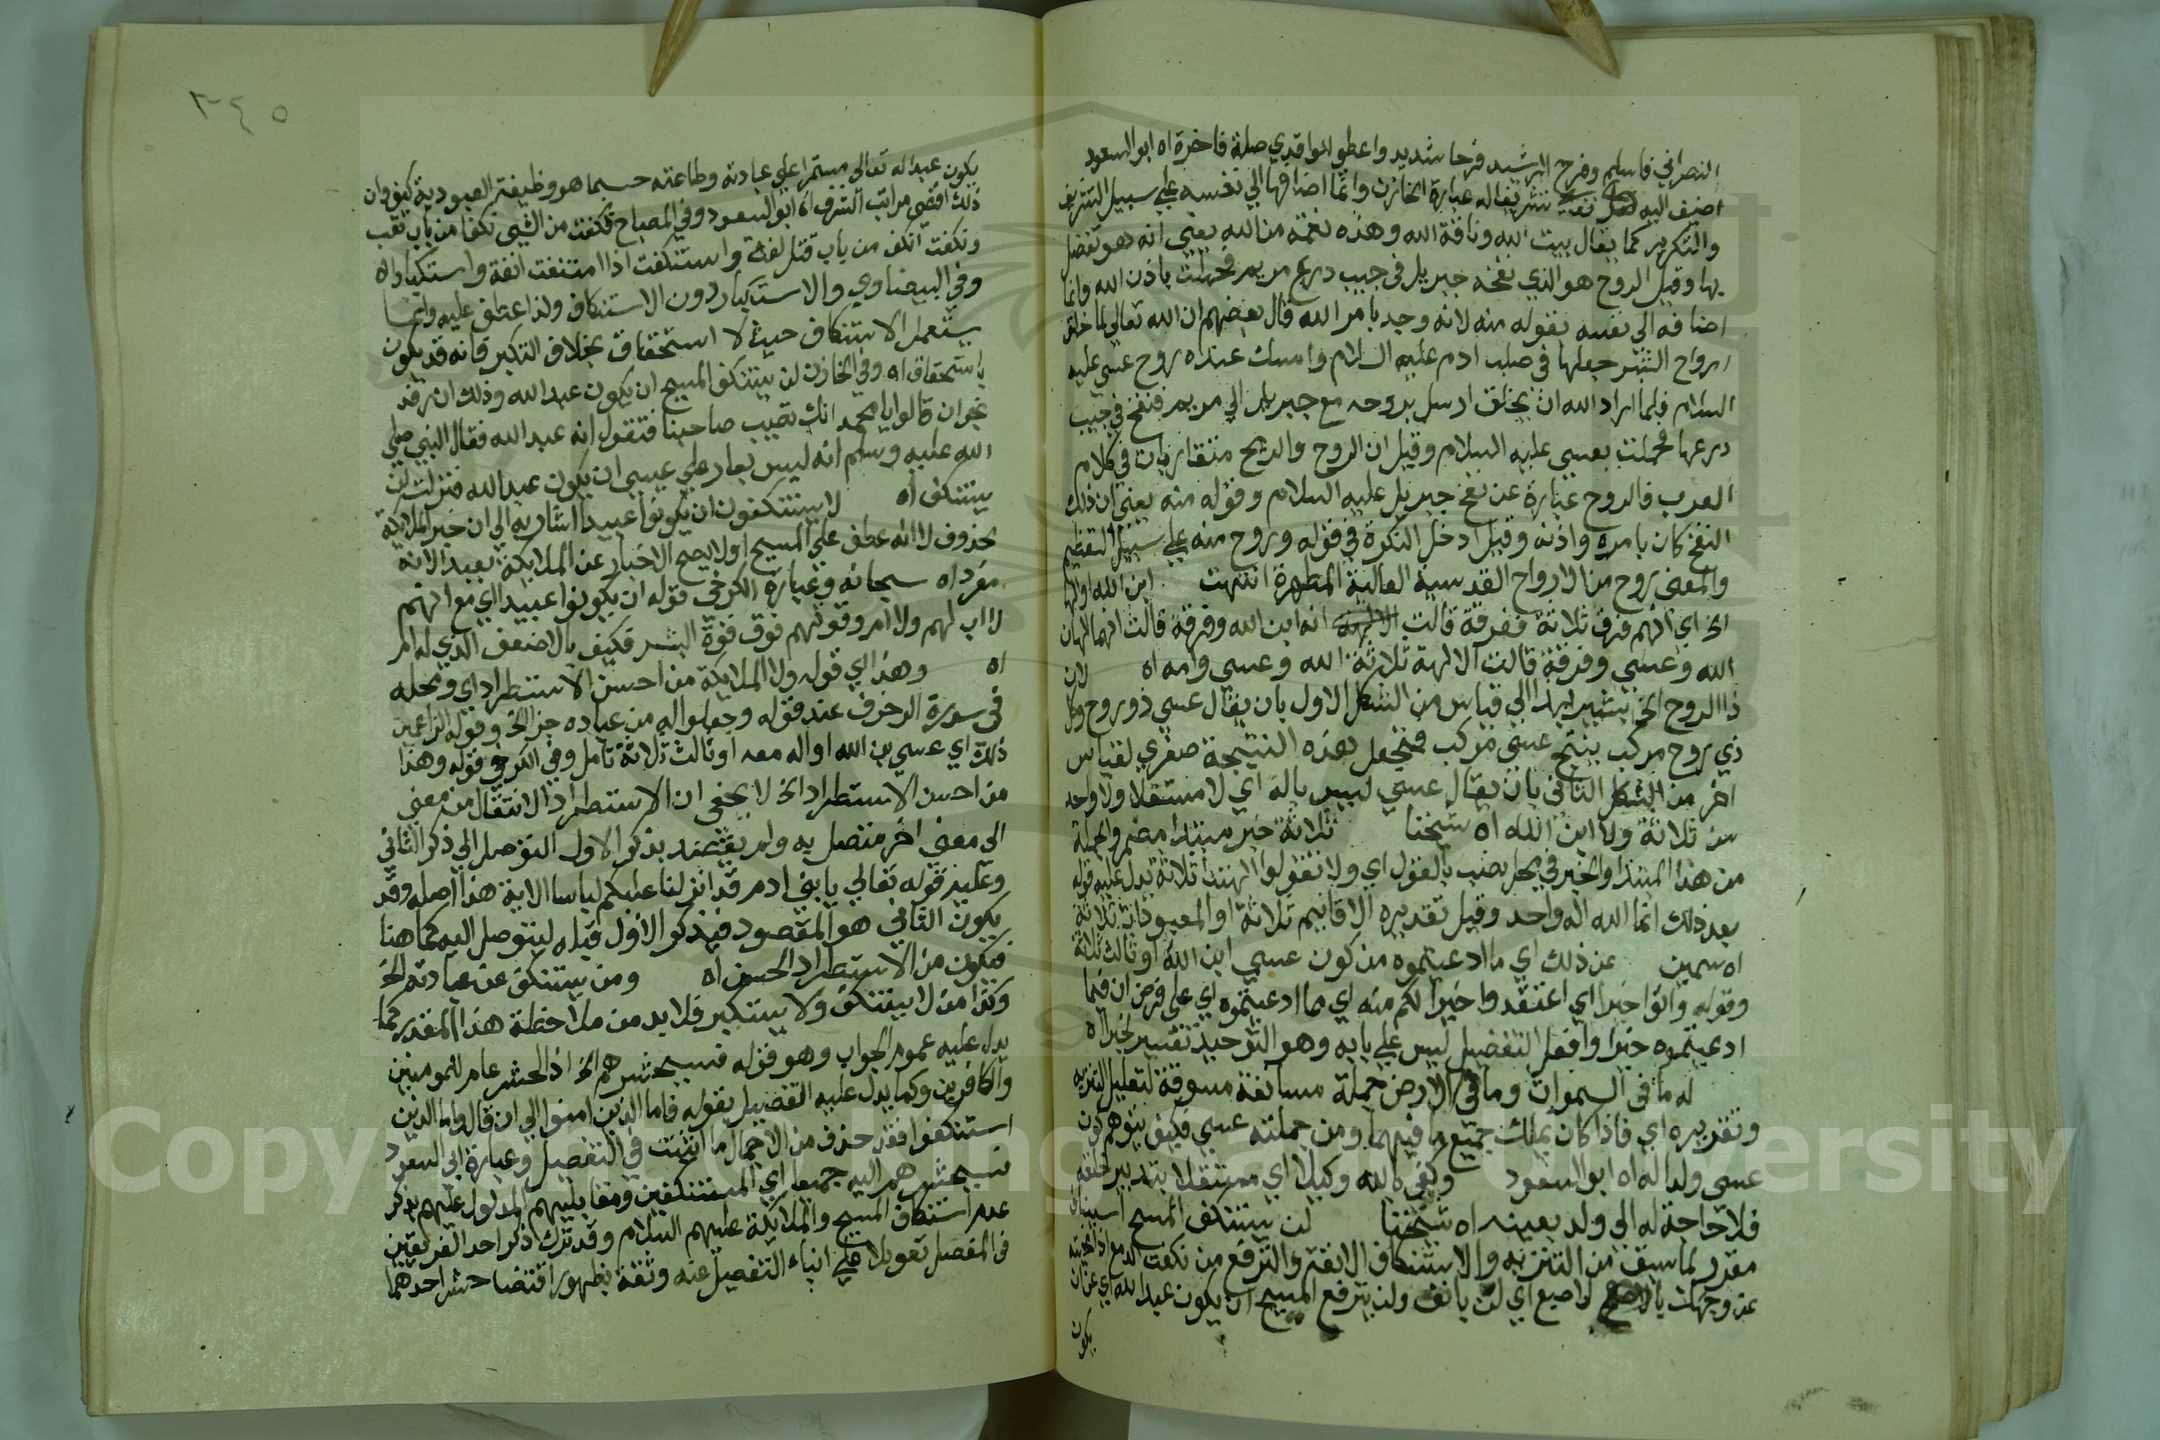 النصراني فاسلم وفرح الرشيد فرحا شديدا واعطي الواقدي صلة فاخرة اه ابو السعود
اضيف اليه تشريفا له عبارة الخازن وانما اضافها الي نفسه علي سبيل التشريف
والتكريم كما يقال بيت الله وناقة الله وهذه نعمة من الله يعني انه هو تفضل
بها وقيل الروح هو الذي نفخه جبريل في جيب درع مريم فحملت باذن الله وانما
اضافه الي نفسه بقوله منه لانه وجد بامر الله قال بعضهم ان الله تعالي لما خلق
ارواح البشر جعلها في صلب ادم عليه السلام وامسك عنده روح عيسي عليه
السلام فلما اراد الله ان يخلق ارسل بروحه مع جبريل الي مريم فنفخ في جيب
درعها فحملت بعيسي عليه السلام وقيل ان الروح والريح متقاربان في كلام
العرب فالروح عبارة عن نفخ جبريل عليه السلام وقوله منه يعني ان ذلك
النفخ كان بامره واذنه وقيل ادخل النكرة في قوله وروح منه علي سبيل التعظيم
والمعني روح من الارواح القدسية العالية المطهرة انتهت ابن الله او الها
الخ اي انهم فرق ثلاثة ففرقة قالت انه ابن الله وفرقة قالت انهما الهان
الله وعيسي وفرقة قالت الالهة ثلاثة الله وعيسي وامه اه لان
ذا الروح الخ يشير بهذا الي قياس من الشكل الاول بان يقال عيسي ذو روح وكل
ذي روح مركب ينتج عيسي مركب فتجعل هذه النتيجة صغري لقياس
اخر من الشكل الثاني بان يقال عيسي ليس باله اي لا مستقلا ولا واحد
من ثلاثة ولا ابن الله اه شيخنا ثلاثة خبر مبتدا مضمر والجملة
من هذا المبتدا والخبر في محل نصب بالقول اي ولا تقولوا الهتنا ثلاثة يدل عليه قوله
بعد ذلك انما الله اله واحد وقيل تقديره الاقانيم ثلاثة او المعبودات ثلاثة
اه سمين عن ذلك اي ما ادعيتموه من كون عيسي ابن الله او ثالث ثلاثة
وقوله واتوا خيرا اي اعتقدوا خيرا لكم منه اي مما ادعيتموه اي علي فرض ان فيما
ادعيتموه خيرا وافعل التفضيل ليس علي بابه وهو التوحيد تفسير لخيرا اه
له ما في السموات وما في الارض جملة مستانفة مسوقة لتعليل التنزيه
وتقديره اي فاذا كان يملك جميع ما فيهما ومن جملته عيسي فكيف يتوهم كون
عيسي ولدا له اه ابو السعود وكفي بالله وكيلا اي مستقلا بتدبير خلقه
فلا حاجة له الي ولد يعينه اه شيخنا لن يستنكف المسيح استيناف
مقرر لما سبق من التنزيه والاستنكاف الانفة والترفع من نكفت الدمع اذا نحيته
عن وجهك بالاصبع اي لن يانف ولن يترفع المسيح ان يكون عبدا لله اي عن ان
يكون
٣٤٥
يكون عبدا له تعالي مستمرا علي عبادته وطاعته حسبما هو وظيفة العبودية كيف وان
ذلك اقصي مراتب الشرف اه ابو السعود وفي المصباح نكفت من الشي نكفا من باب تعب
ونكفت انكف من باب قتل لغة واستنكفت اذا امتنعت انفة واستكبارا اه
وفي البيضاوي والاستكبار دون الاستنكاف ولذا عطف عليه وانما
يستعمل الاستنكاف حيث لا استحقاق بخلاف التكبر فانه قد يكون
باستحقاق اه وفي الخازن لن يستنكف المسيح ان يكون عبدا لله وذلك ان وفد
نجران قالوا يا محمد انك تعيب صاحبنا فتقول انه عبد الله فقال النبي صلي
الله عليه وسلم انه ليس بعار علي عيسي ان يكون عبدا لله فنزلت لن
يستنكف اه لا يستنكفون ان يكونوا عبيدا اشار به الي ان خبر الملايكة
محذوف لا انه عطف علي المسيح اولا يصح الاخبار عن الملايكة بعبدا لانه
مفرد اه سبحانه وعبارة الكرخي قوله ان يكونوا عبيدا اي مع انهم
لا اب لهم ولا ام وقوتهم فوق قوة البشر فكيف بالاضعف الذي له ام
اه وهذا اي قوله ولا الملايكة من احسن الاستطراد اي ومحله
في سورة الزخرف عند قوله وجعلوا له من عباده جزا الخ وقوله الزاعمين
ذلك اي عيسي بن الله او اله معه او ثالث ثلاثة تامل وفي الكرخي قوله وهذا
من احسن الاستطراد الخ لا يخفي ان الاستطراد الانتقال من معني
الي معني اخر متصل به ولم يقصد بذكر الاول التوصل الي ذكر الثاني
وعليه قوله تعالي يا بني ادم قد انزلنا عليكم لباسا الاية هذا اصله وقد
يكون الثاني هو المقصود فيذكر الاول قبله ليتوصل اليه كما هنا
فيكون من الاستطراد الحسن اه ومن يستنكف عن عبادته الخ
وكذا من لا يستنكف ولا يستكبر فلا بد من ملاحظة هذا المقدر كما
يدل عليه عموم الجواب وهو قوله فسيحشرهم الخ اذ الحشر عام للمومنين
والكافرين وكما يدل عليه التفصيل بقوله فاما الذين امنوا الي ان قال واما الذين
استنكفوا فقد حذف من الاجمال ما اثبت في التفصيل وعبارة ابي السعود
فسيحشرهم اليه جميعا اي المستنكفين ومقابليهم المدلول عليهم بذكر
عدم استنكاف المسيح والملايكة عليهم السلام وقد ترك ذكر احد الفريقين
في المفصل تعويلا علي انباء التفصيل عنه وثقة بظهور اقتضا حشر احدهما
Copyright © King Saud University